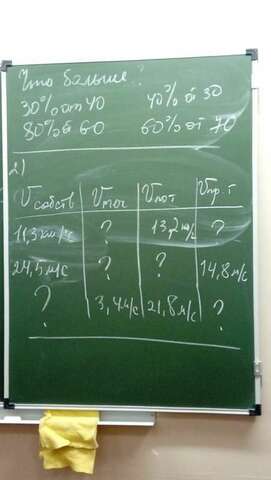 Что больше?
30% от 40 40% от 30
80% от 60 60% от 70
2)
Vсобств Vтеч Vпот Vпр.т
11,3 км/с ? 13,2 км/с ?
24,5 м/с ? ? 14,8 м/с
? 3,4 м/с 21,8 м/с ?